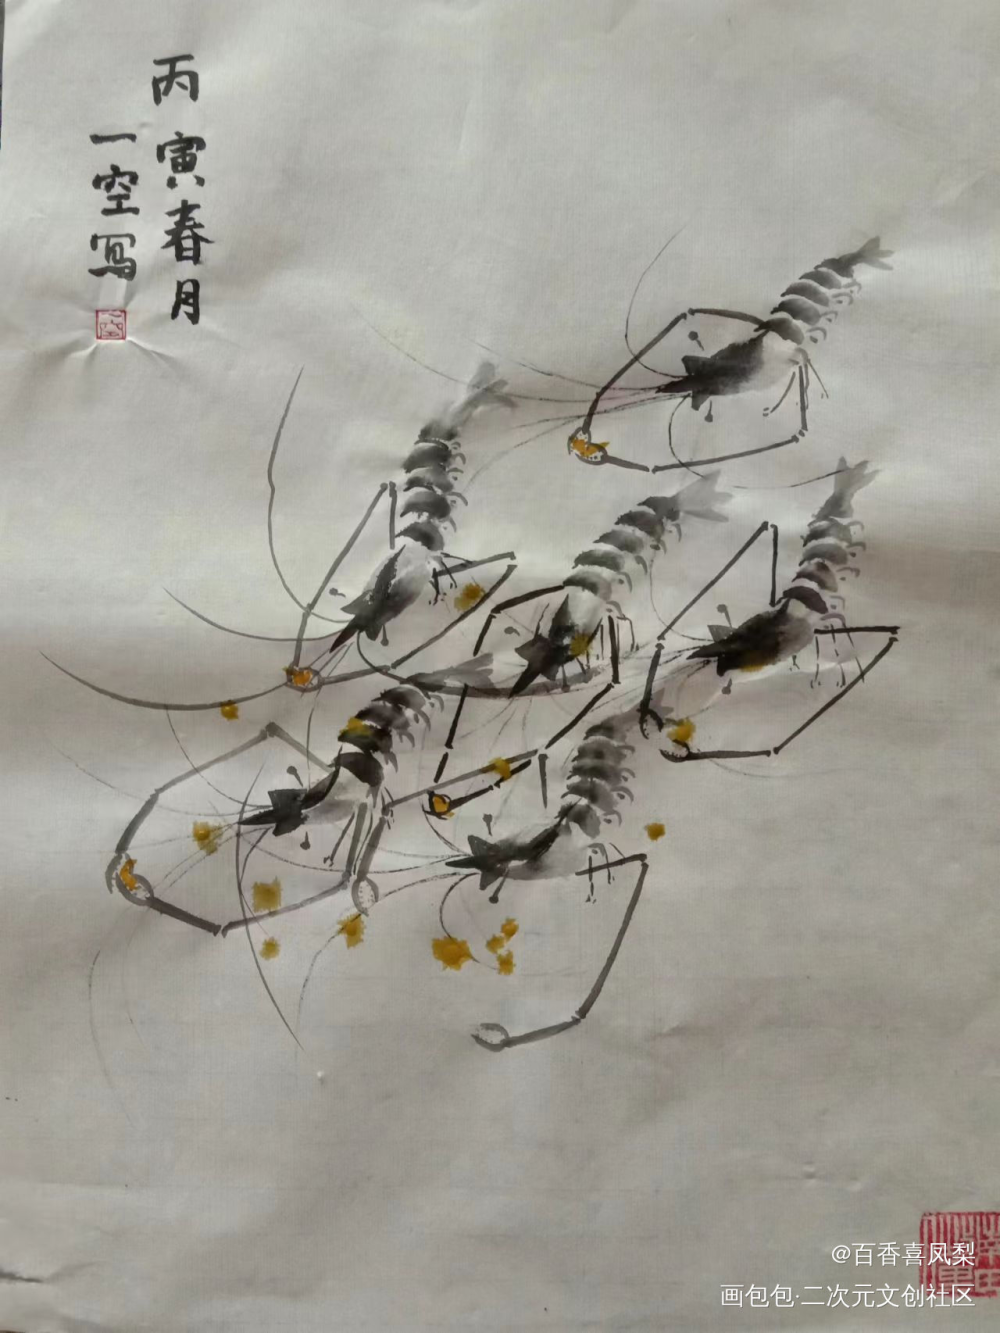 丙寅春月
一空写
@百香喜凤梨
画包包·二次元文创社区